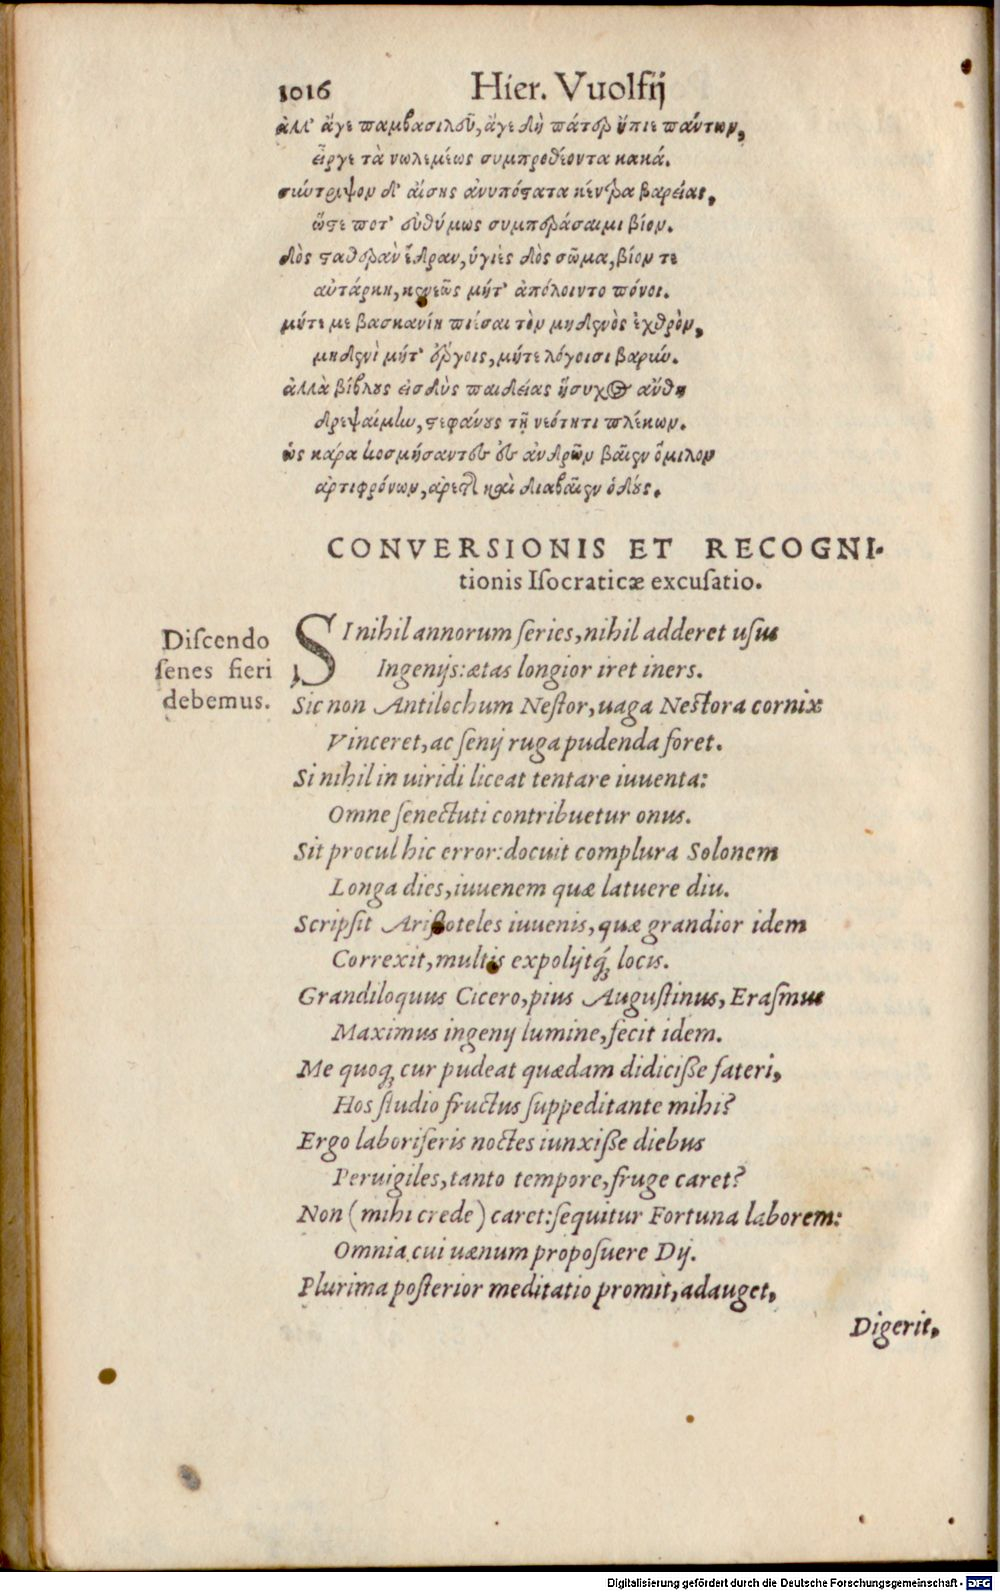 1016 Hier. Vuolfij
ἀλλ' ἄγε παμβασιλεῦ, ἄγε δὴ πάτερ ἤπιε πάντων,
εἶργε τὰ νωλεμέως συμπροθέοντα κακά.
σύντριψον δ' αἴσης ἀνυπόστατα κέντρα βαρείας,
ὥστε ποτ' εὐθύμως συμπεράσαιμι βίον.
δὸς σταθερὰν ἕδραν, ὑγιὲς δὸς σῶμα, βίον τε
αὐτάρκη, κενεῶς μήτ' ἀπόλοιντο πόνοι.
μήτε με βασκανίη πιέσαι τὸν μηδενὸς ἐχθρὸν,
μηδενὶ μήτ' ἔργοις, μήτε λόγοισι βαρύν.
ἀλλὰ βίβλους εἰσδὺς παιδείας ἥσυχος αὔθη
δρεψαίμην, στεφάνους τῇ νεότητι πλέκων.
ὡς κάρα κοσμήσαντες ἐς ἀνδρῶν βαῖεν ὅμιλον
ἀρτιφρόνων, ἀρετῆς καὶ διαβαῖεν ὁδούς.
CONVERSIONIS ET RECOGNI-
tionis Isocraticæ excusatio.
Discendo
senes fieri
debemus.
SI nihil annorum series, nihil adderet usus
Ingenijs: ætas longior iret iners.
Sic non Antilochum Nestor, uaga Nestora cornix
Vinceret, ac senij ruga pudenda foret.
Si nihil in uiridi liceat tentare iuuenta:
Omne senectuti contribuetur onus.
Sit procul hic error: docuit complura Solonem
Longa dies, iuuenem quæ latuere diu.
Scripsit Aristoteles iuuenis, quæ grandior idem
Correxit, multis expolijtq́; locis.
Grandiloquus Cicero, pius Augustinus, Erasmus
Maximus ingenij lumine, fecit idem.
Me quoq; cur pudeat quædam didicisse fateri,
Hos studio fructus suppeditante mihi?
Ergo laboriferis noctes iunxisse diebus
Peruigiles, tanto tempore, fruge caret?
Non (mihi crede) caret: sequitur Fortuna laborem:
Omnia cui uænum proposuere Dij.
Plurima posterior meditatio promit, adauget,
Digerit,
Digitalisierung gefördert durch die Deutsche Forschungsgemeinschaft - DFG